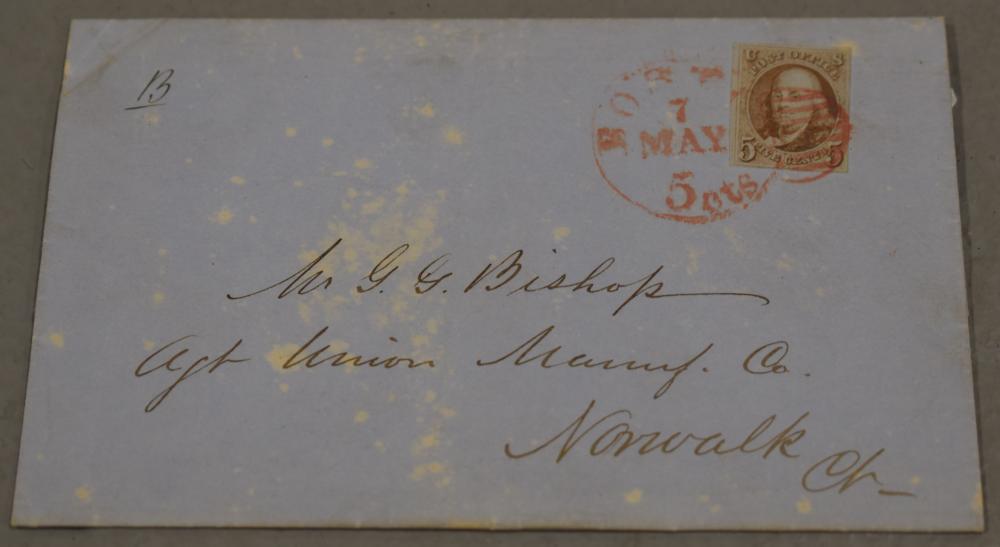 B
BOST
7
MAY
5cts
U S
POST OFFICE
5 FIVE CENTS 5
Mr G. G. Bishop
Agt Union Manuf. Co.
Norwalk
Ct